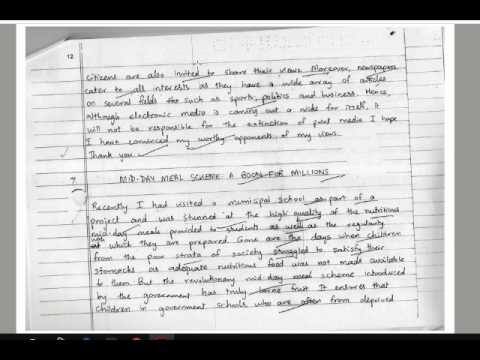 12
citizens are also invited to share their views. Moreover, newspapers
cater to all interests as they have a wide array of articles
on several fields such as sports, politics and business. Hence,
although electronic media is carving out a niche for itself, it
will not be responsible for the extinction of print media I hope
I have convinced my worthy opponents of my views.
Thank you.
MID-DAY MEAL SCHEME A BOON FOR MILLIONS
Recently I had visited a municipal school as part of a
project and was stunned at the high quality of the nutritious
mid-day meals provided to students as well as the regularity
with which they are prepared. Gone are the days when children
from the poor strata of society struggled to satisfy their
stomachs as adequate nutritious food was not made available
to them. But the revolutionary mid-day meal scheme introduced
by the government has truly borne fruit. It ensures that
children in government schools who are often from deprived